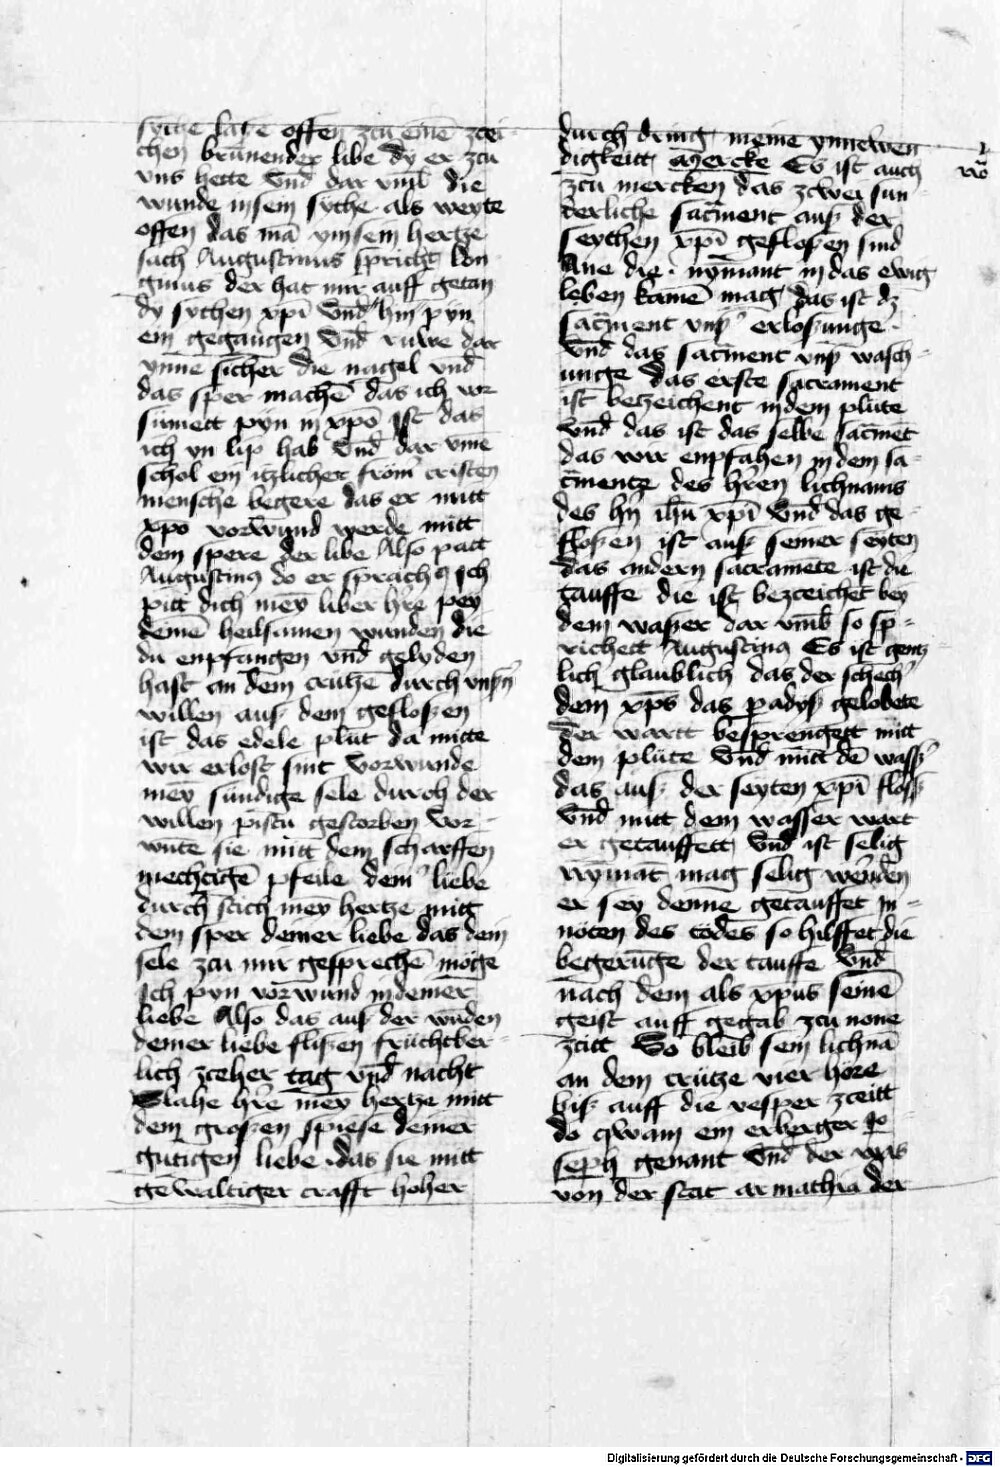 sythe latē offen zcu einē zcei-
chen brūnender libe dy er zcu
vns hette Vnd dar vmb die
wunde in sein sythe als weyte
offen das mā ym sein hertze
sach Augustinus spricht lon
ginus der hat mir auff getan
dy sythen xpī Vnd bin
ein gegangen Vnd ruwe dar
ynne sicher die nagel vnd
das sper machē das ich vor
sunett pyn in xpō Ist das
ich yn lip hab Vnd dar vme
schol ein itzlicher from cristen
mensche begere das er mitt
xpo vorwund werde mitt
dem spere der libe Also patt
Augustinꝯ do er sprach Ich
pitt dich mey liber hre pey
deinē heilsamen wunden die
du enpfangen vnd gelyden
hast an dem crutze durch vnsn
willen aus dem geflosen
ist das edele plut da mitte
wir erlost sint Vorwunde
mey sundige sele durch der
willen gestorben Vor-
wute sie mitt dem scharffen
mechtigē pfeile deinr liebe
durch stich mey hertze mitt
dem sper deiner liebe das dein
sele zcu mir gesprechē möge
Ich pyn vorwund in deiner
liebe Also das aus der wūden
deiner liebe flisen fruchtber-
lich zceher tag vnd nacht
Slahe hre mey hertze mitt
dem grosen spiese deiner
gutigen liebe das sie mitt
gewaltiger crafft hoher
durch dring meine ynnewen
digkeitt Mercke Es ist auch
zcu mercken das zcwei sun
derliche sacment aus der
seythen xpī geflosen sind
Ane die nymant in das ewig
leben kamē mag das ist dz
sacment vnsr erlosunge
Vnd das sacment vnsr wasch-
unge das erste sacrament
ist betzeichent in dem plute
Vnd das ist das selbe sacmēt
das wir enpfahen in dem sa-
cmente des hren lichnams
des hn ihū xpī Vnd das ge-
flosen ist aus seiner seyten
das andern sacramēte ist die
tauffe die ist bezceichet bey
dem waser dar vmb so sp-
richett Augustinꝯ Es ist gentz-
lich glaublich das der schechr
dem xps das padys gelobete
der wartt besprengett mitt
dem plute Vnd mitt dē wassr
das aus der seyten xpī floss
Vnd mitt dem wasser wart
er getauffett Vnd ist selig
Nymāt mag selig werden
er sey denne getauffet in-
nöten des todes so hilffet die
begerūge der tauffe Vnd
nach dem als xpus seinē
geist auff gegab zcu none
zcitt So bleib sein lichnā
an dem crutze vier höre
bis auff die vesper zceitt
do qwam ein erberger Jo
seph genant Vnd der was
von der stat armathia der